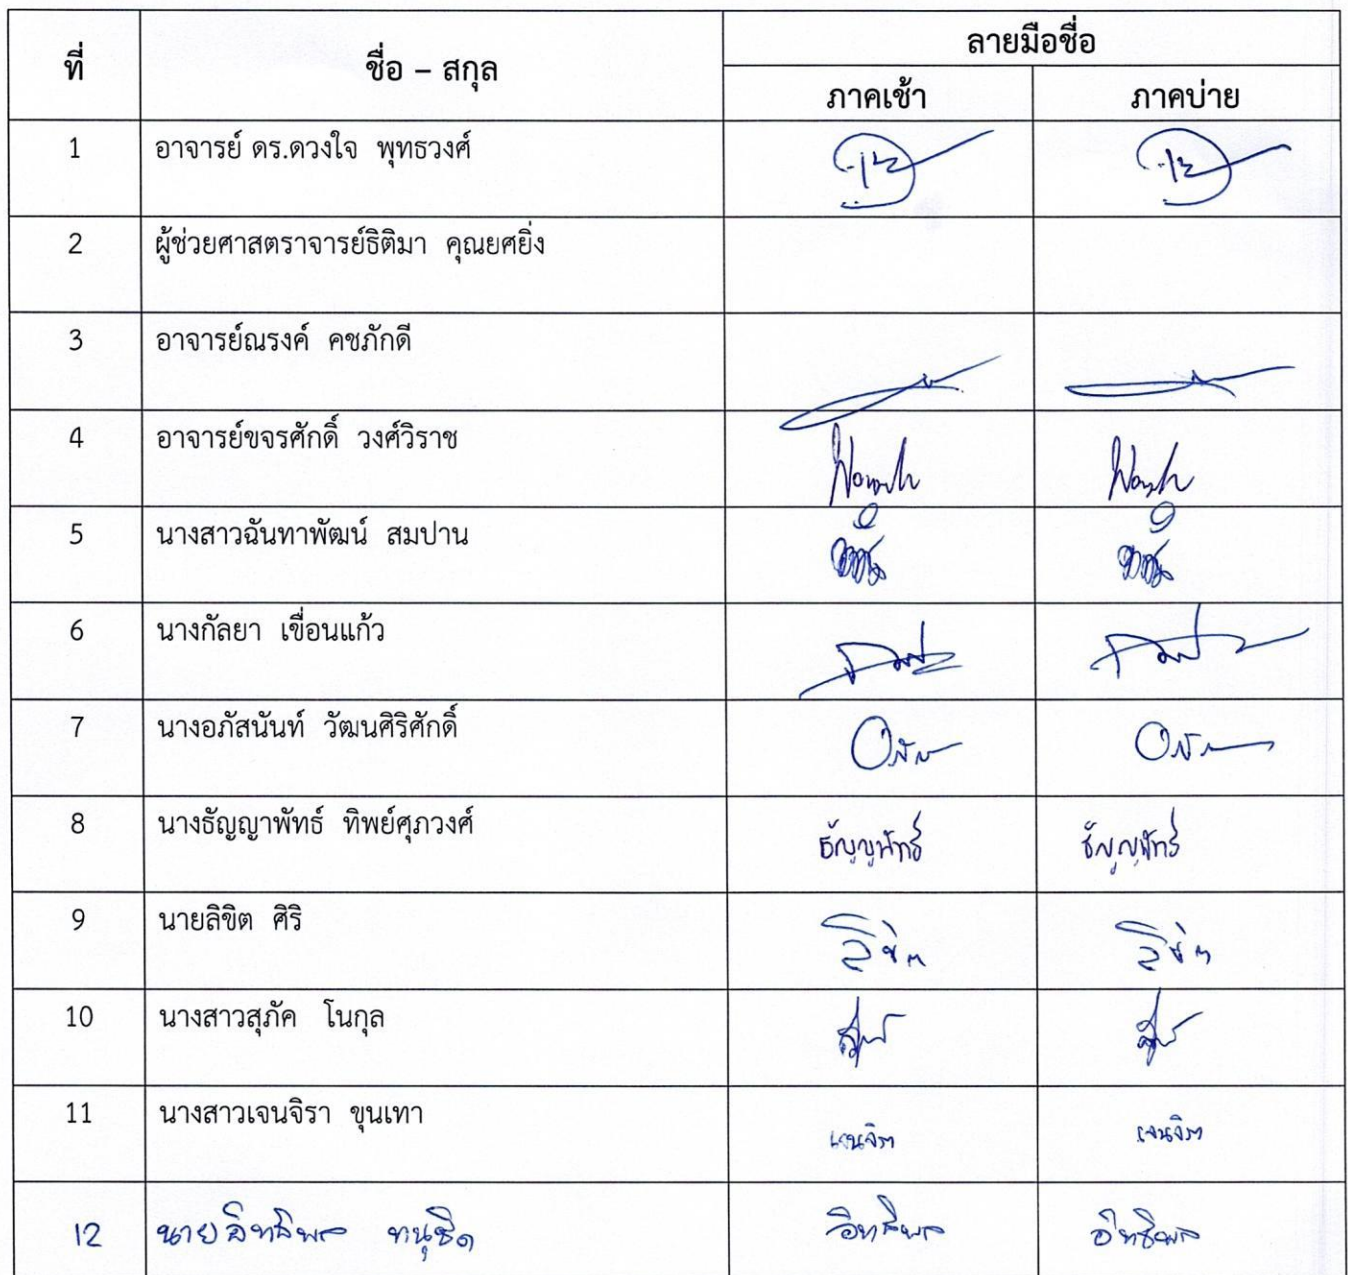 ที่ ชื่อ – สกุล ลายมือชื่อ
ภาคเช้า ภาคบ่าย
1 อาจารย์ ดร.ดวงใจ พุทธวงศ์
2 ผู้ช่วยศาสตราจารย์ธิติมา คุณยศยิ่ง
3 อาจารย์ณรงค์ คชภักดี
4 อาจารย์ขจรศักดิ์ วงศ์วิราช
5 นางสาวฉันทาพัฒน์ สมปาน
6 นางกัลยา เขื่อนแก้ว
7 นางอภัสนันท์ วัฒนศิริศักดิ์
8 นางธัญญาพัทธ์ ทิพย์ศุภวงศ์ ธัญญพัทธ์ ธัญญพัทธ์
9 นายลิขิต ศิริ ลิขิต ลิขิต
10 นางสาวสุภัค โนกุล
11 นางสาวเจนจิรา ขุนเทา เจนจิรา เจนจิรา
12 นายอิทธิพล ทนุชิต อิทธิพล อิทธิพล